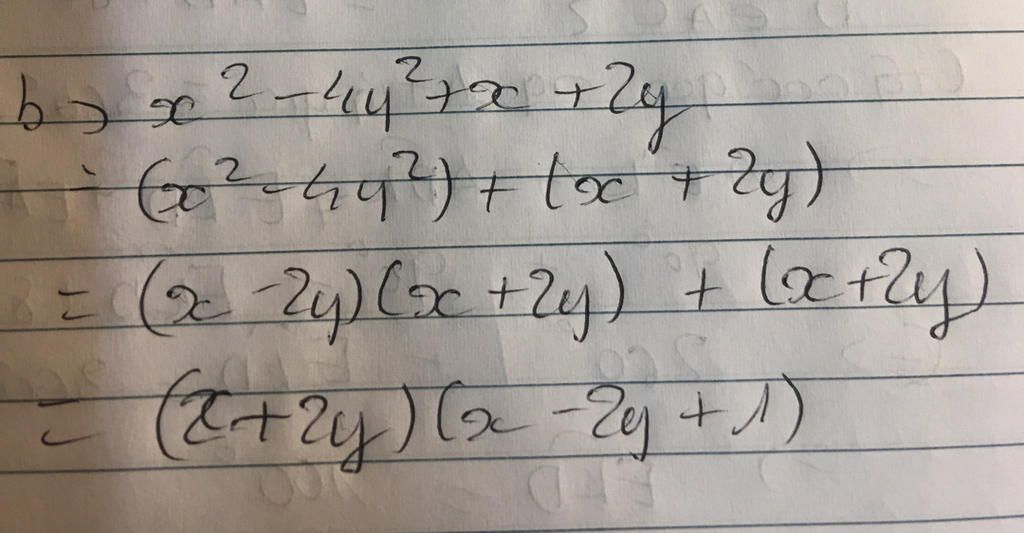 b) x² - 4y² + x + 2y
= (x² - 4y²) + (x + 2y)
= (x - 2y)(x + 2y) + (x + 2y)
= (x + 2y)(x - 2y + 1)